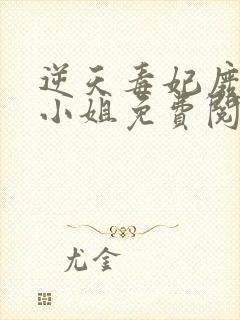 逆天毒妃废
小姐免費閱
尤金